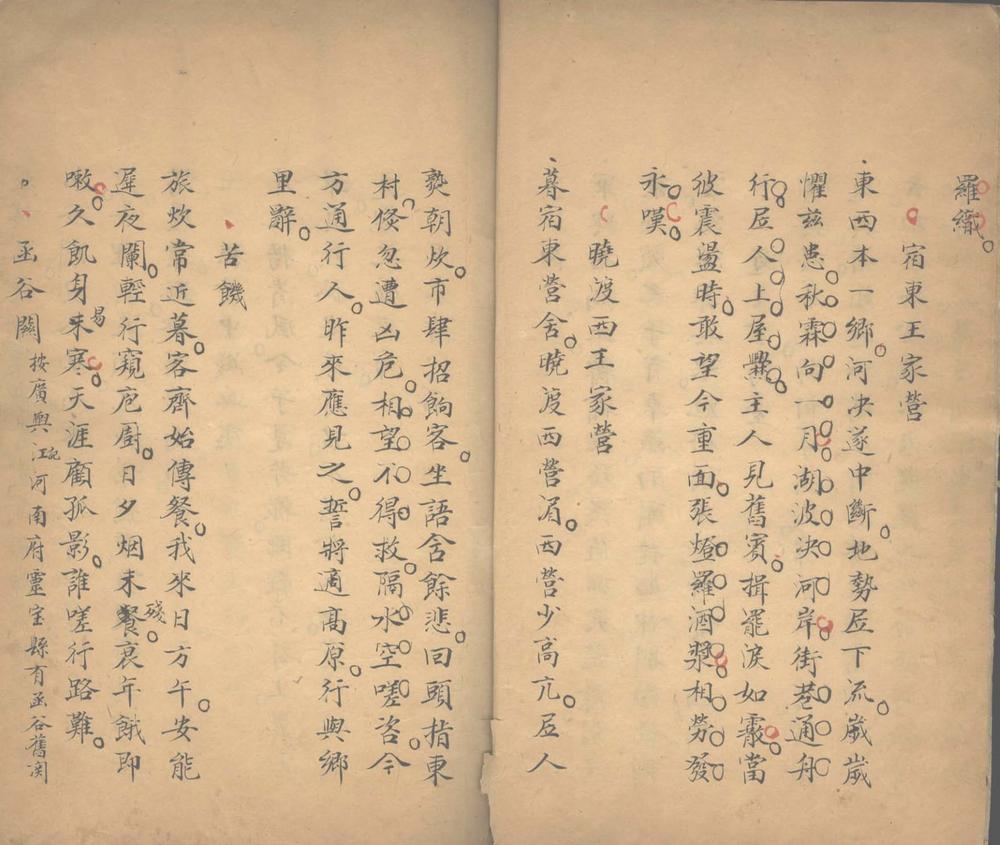 羅織
宿東王家营
東西本一鄉河决遂中斷地勢居下流歲歲
懼兹患秋霖向一月湖波决河岸街巷通舟
行居人上屋爨主人見舊賓揖罷淚如霰當
彼震盪時敢望今重面張燈羅酒漿相勞發
永嘆
曉渡西王家营
暮宿東营舍曉渡西营湄西营少高亢居人
爇朝炊市肆招餉客坐語含餘悲回頭指東
村倐忽遭凶危相望不得救隔水空嗟咨今
方通行人昨來應見之誓將適高原行與鄉
里辭
苦饑
旅炊常近暮客齊始傳餐我來日方午安能
遲夜闌輕行窺庖廚日夕烟未餐殘衰年餓即
嗽久飢身來易寒天涯顧孤影誰嗟行路難
函谷關按廣輿記江河南府靈宝縣有函谷舊関